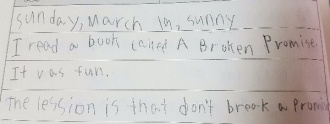 sunday, March 19, sunny
I read a book called A Broken Promise.
It was fun.
The lession is that don't break a promise